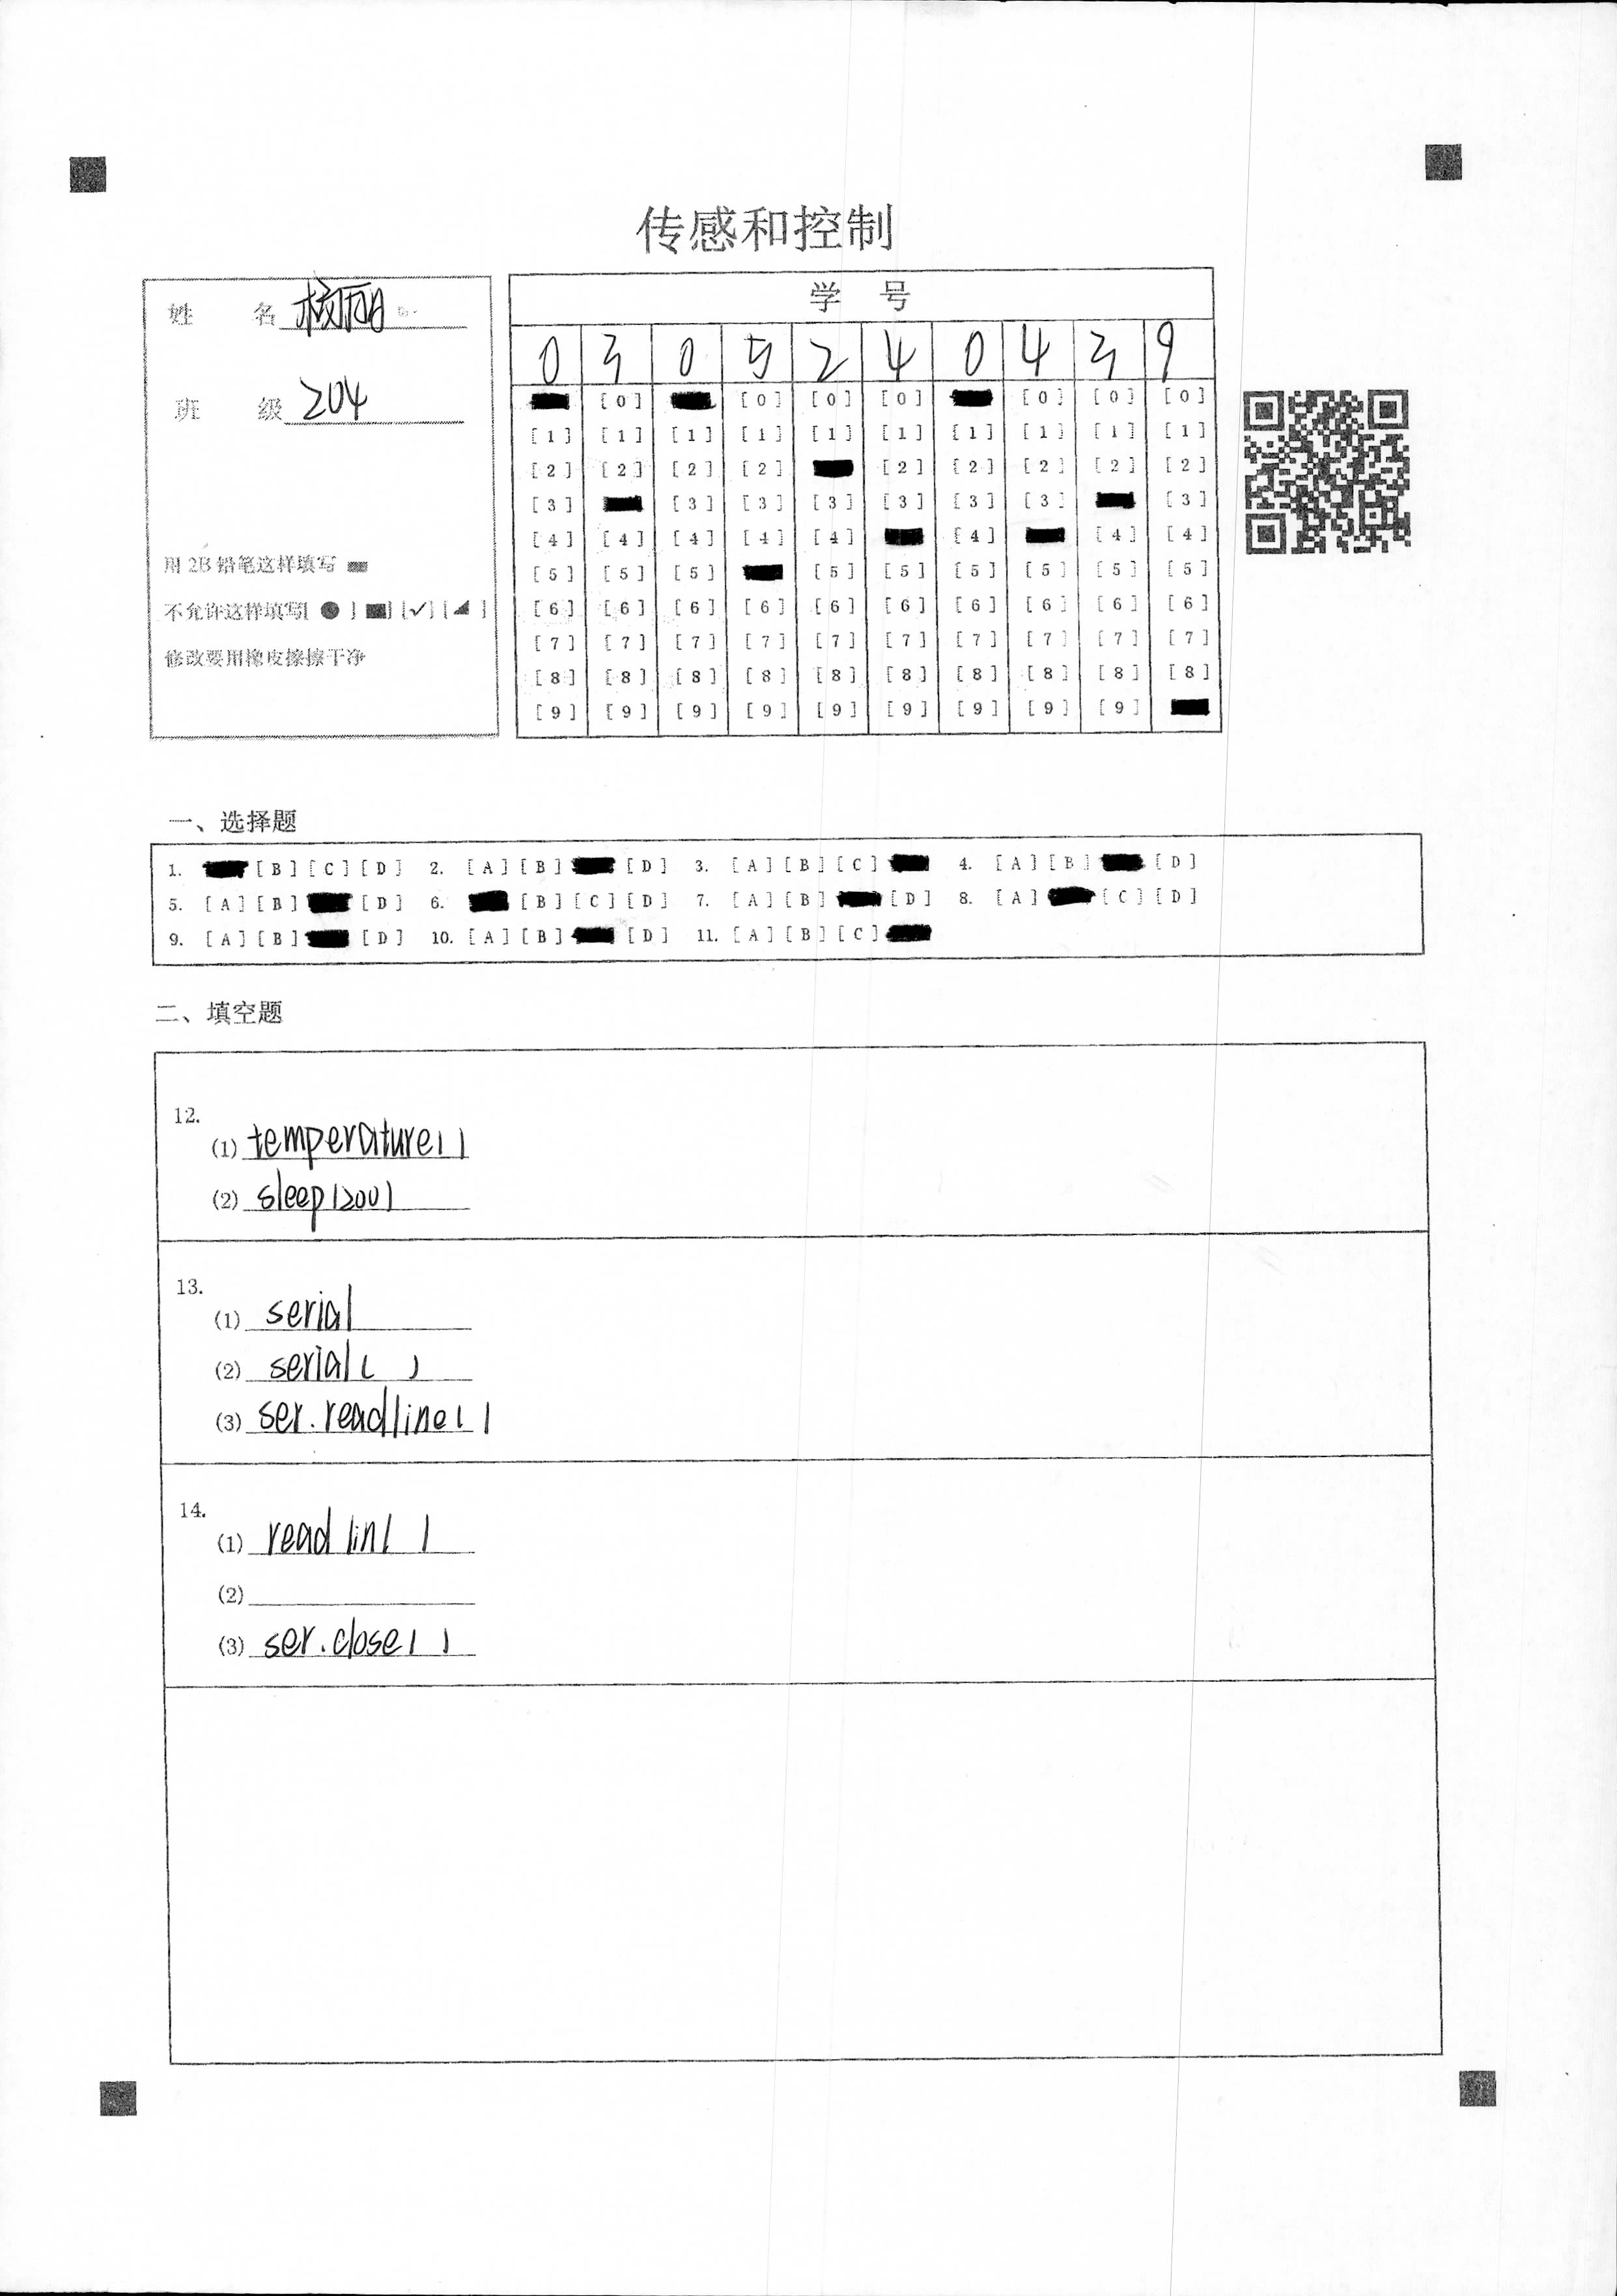 传感和控制
姓 名 杨丽
班 级 204
用 2B 铅笔这样填写
不允许这样填写[ ● ] [■] [✓] [◢ ]
修改要用橡皮擦擦干净
学 号
0 3 0 5 2 4 0 4 3 9
[0] [0] [0] [0] [0] [0] [0]
[1] [1] [1] [1] [1] [1] [1] [1] [1] [1]
[2] [2] [2] [2] [2] [2] [2] [2] [2]
[3] [3] [3] [3] [3] [3] [3] [3]
[4] [4] [4] [4] [4] [4] [4] [4]
[5] [5] [5] [5] [5] [5] [5] [5] [5]
[6] [6] [6] [6] [6] [6] [6] [6] [6] [6]
[7] [7] [7] [7] [7] [7] [7] [7] [7] [7]
[8] [8] [8] [8] [8] [8] [8] [8] [8] [8]
[9] [9] [9] [9] [9] [9] [9] [9] [9]
一、选择题
1. [B] [C] [D] 2. [A] [B] [D] 3. [A] [B] [C] 4. [A] [B] [D]
5. [A] [B] [D] 6. [B] [C] [D] 7. [A] [B] [D] 8. [A] [C] [D]
9. [A] [B] [D] 10. [A] [B] [D] 11. [A] [B] [C]
二、填空题
12.
(1) temperature( )
(2) sleep(200)
13.
(1) serial
(2) serial( )
(3) ser.readline( )
14.
(1) read lin( )
(2)
(3) ser.close( )